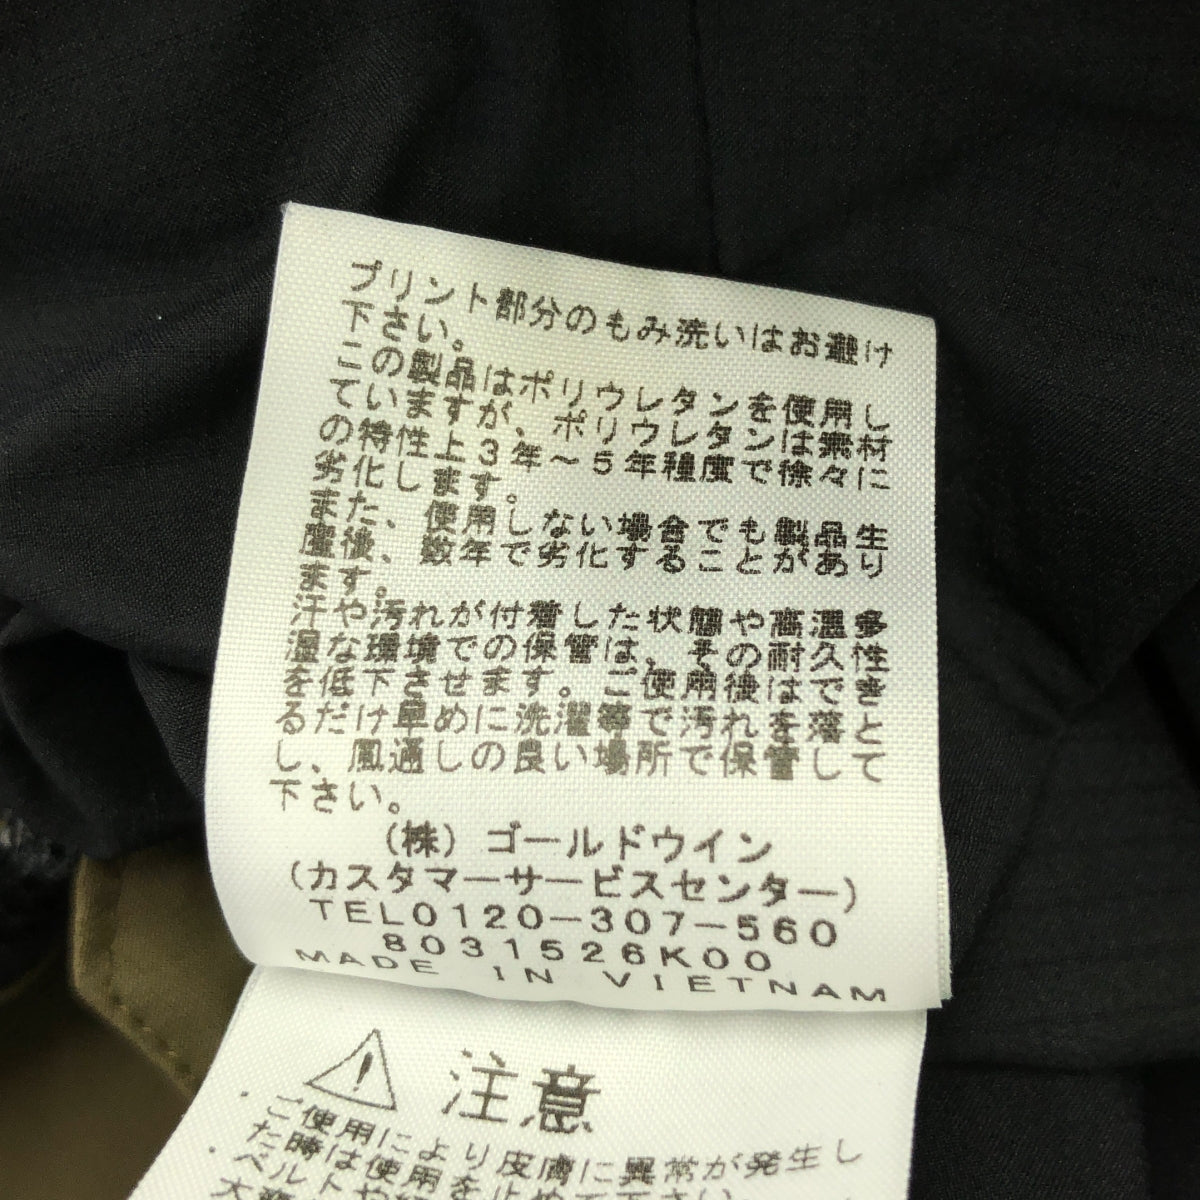 プリント部分のもみ洗いはお避け
下さい。
この製品はポリウレタンを使用し
ていますが、ポリウレタンは素材
の特性上3年～5年程度で徐々に
劣化します。
また、使用しない場合でも製品生
産後、数年で劣化することがあり
ます。
汗や汚れが付着した状態や高温多
湿な環境での保管は、その耐久性
を低下させます。ご使用後はでき
るだけ早めに洗濯等で汚れを落と
し、風通しの良い場所で保管して
下さい。
(株)ゴールドウイン
(カスタマーサービスセンター)
TEL0120-307-560
8031526K00
MADE IN VIETNAM
注意
・ご使用により皮膚に異常が発生し
た時は使用を止めて下さい。
・ベルトや